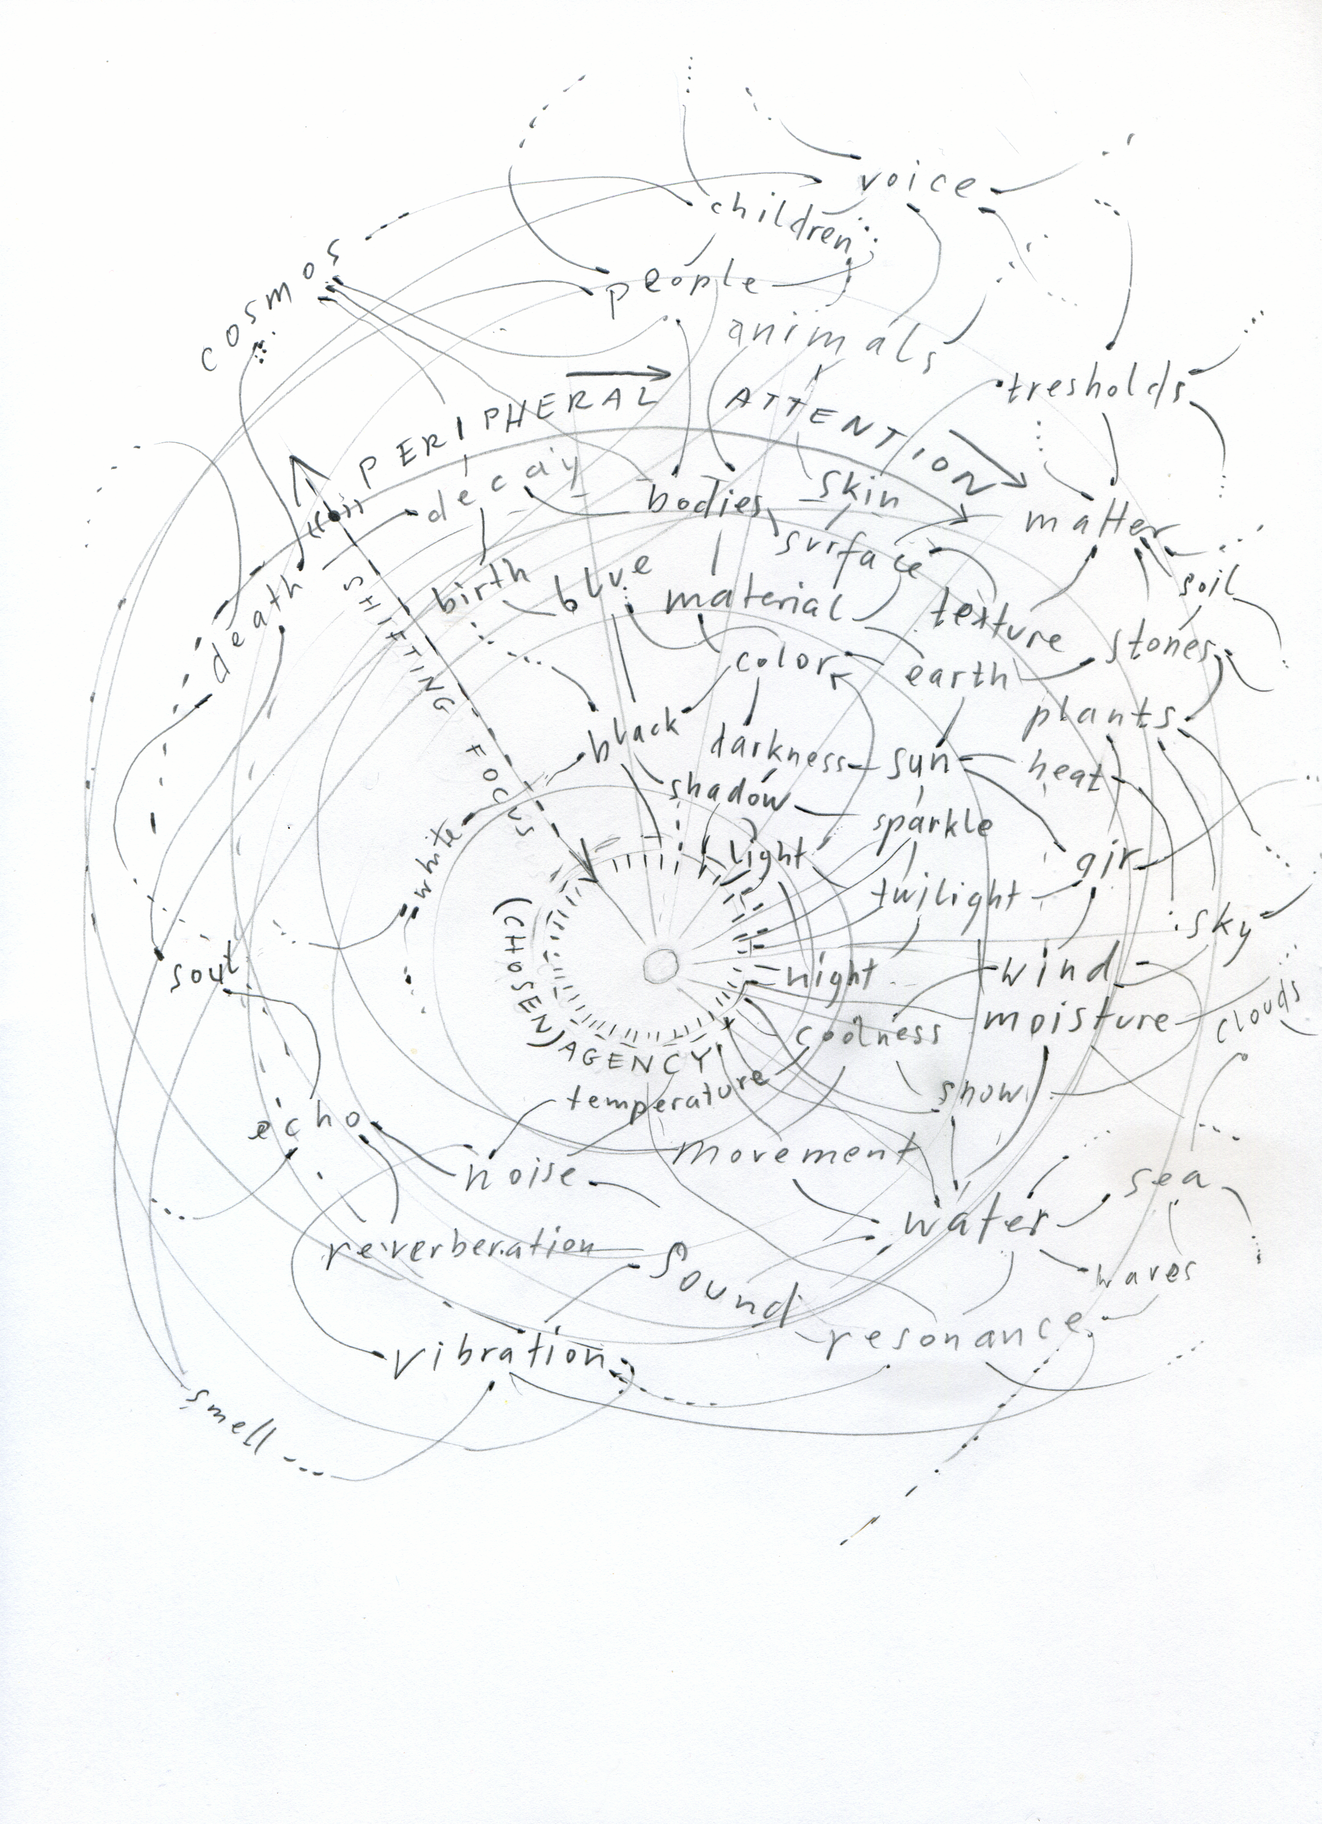 voice
children
cosmos
people
animals
tresholds
PERIPHERAL
ATTENTION
decay
bodies
skin
matter
surface
soil
death
birth
blue
material
texture
stones
SHIFTING FOCUS
color
earth
plants
black
darkness
sun
heat
shadow
white
sparkle
light
air
twilight
sky
soul
night
wind
(CHOSEN) AGENCY
coolness
moisture
clouds
temperature
snow
echo
noise
movement
sea
water
reverberation
Sound
waves
resonance
vibration
smell